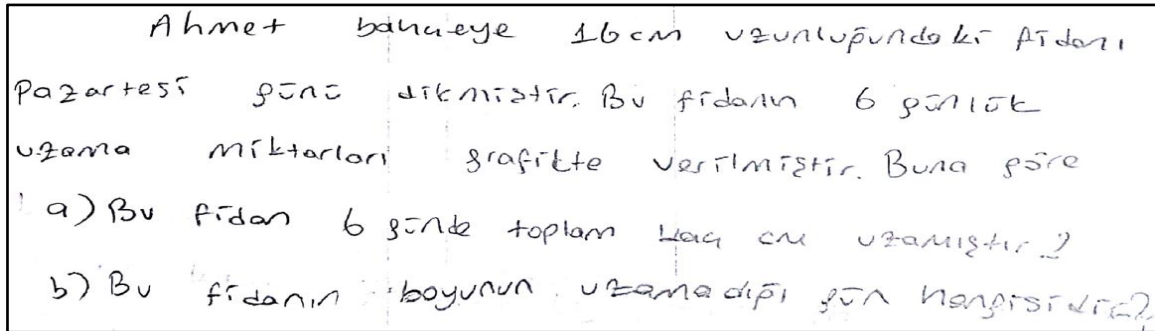 Ahmet bahçeye 16 cm uzunluğundaki fidanı
Pazartesi günü dikmiştir. Bu fidanın 6 günlük
uzama miktarları grafikte verilmiştir. Buna göre
a) Bu fidan 6 günde toplam kaç cm uzamıştır?
b) Bu fidanın boyunun uzamadığı gün hangisidir?